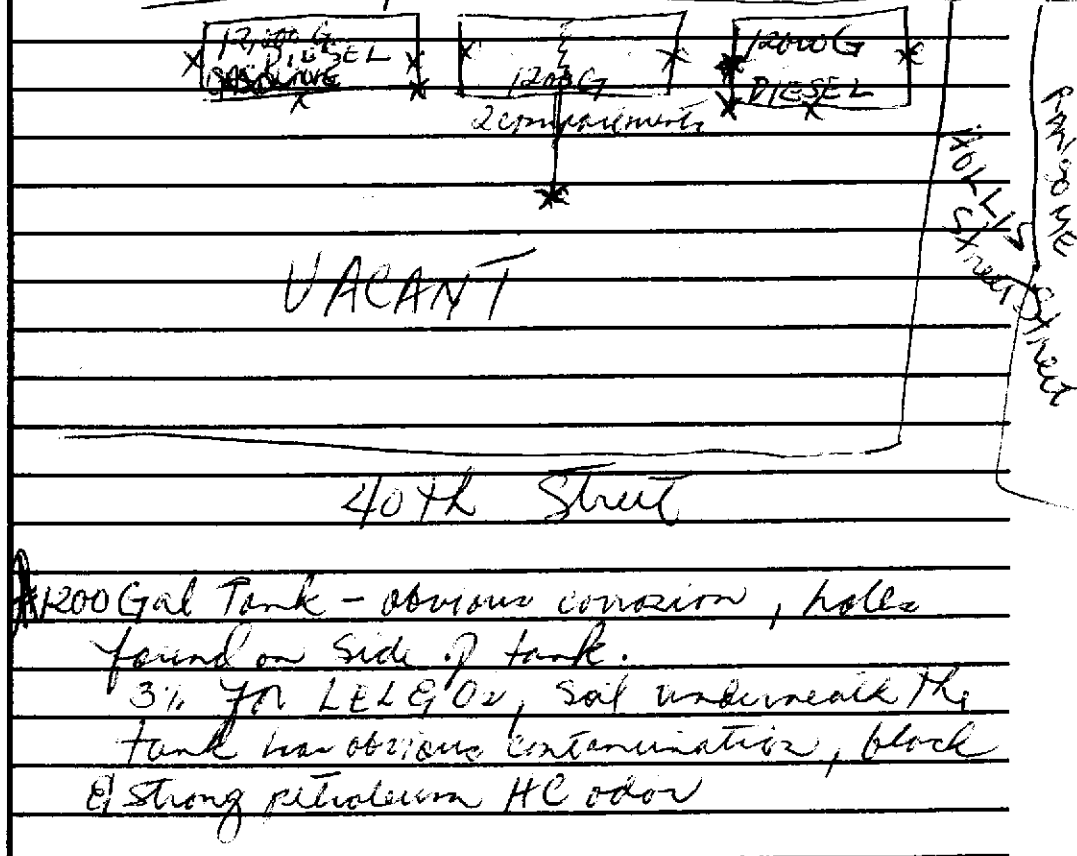 12,000G
DIESEL
GASOLINE
1200G
2 compartments
12000G
DIESEL
HOLLIS
Street
Street
VACANT
40th Street
1200 Gal Tank - obvious corrosion, holes
found on side of tank.
3% for LEL & O2, Soil underneath the
tank has obvious contamination, black
& strong petroleum HC odor